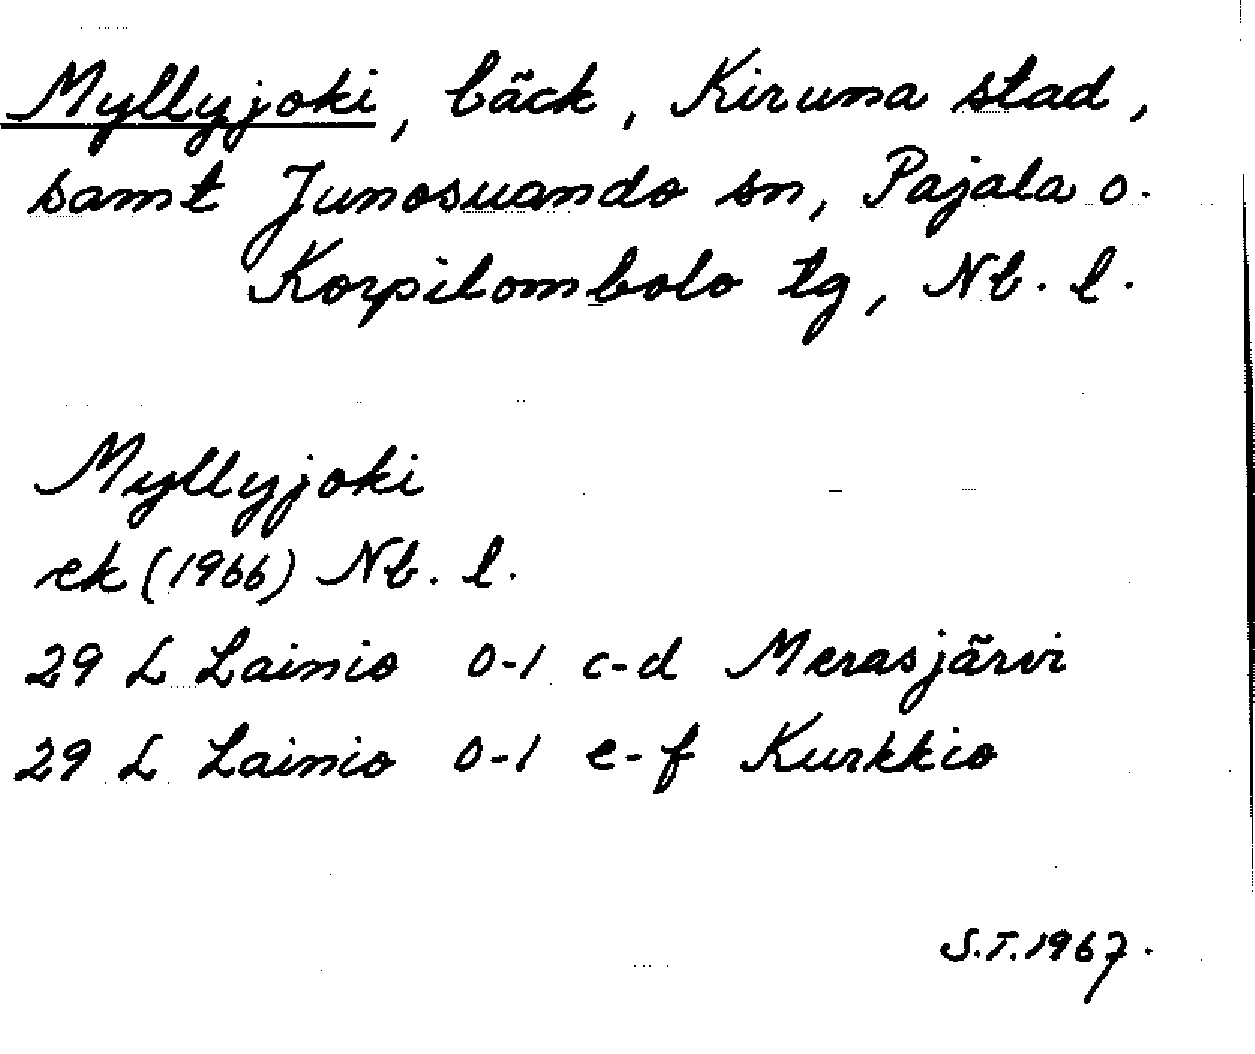 Myllyjoki, bäck, Kiruna stad,
samt Junosuando sn, Pajala o.
Korpilombolo tg, Nb. l.
Myllyjoki
ek (1966) Nb. l.
29 L Lainio 0-1 c-d Merasjärvi
29 L Lainio 0-1 e-f Kurkkio
S.T. 1967.